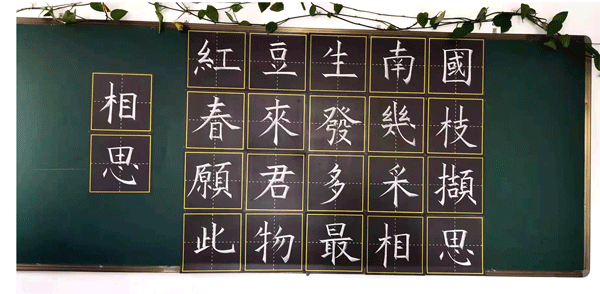 相思
紅豆生南國
春來發幾枝
願君多采擷
此物最相思